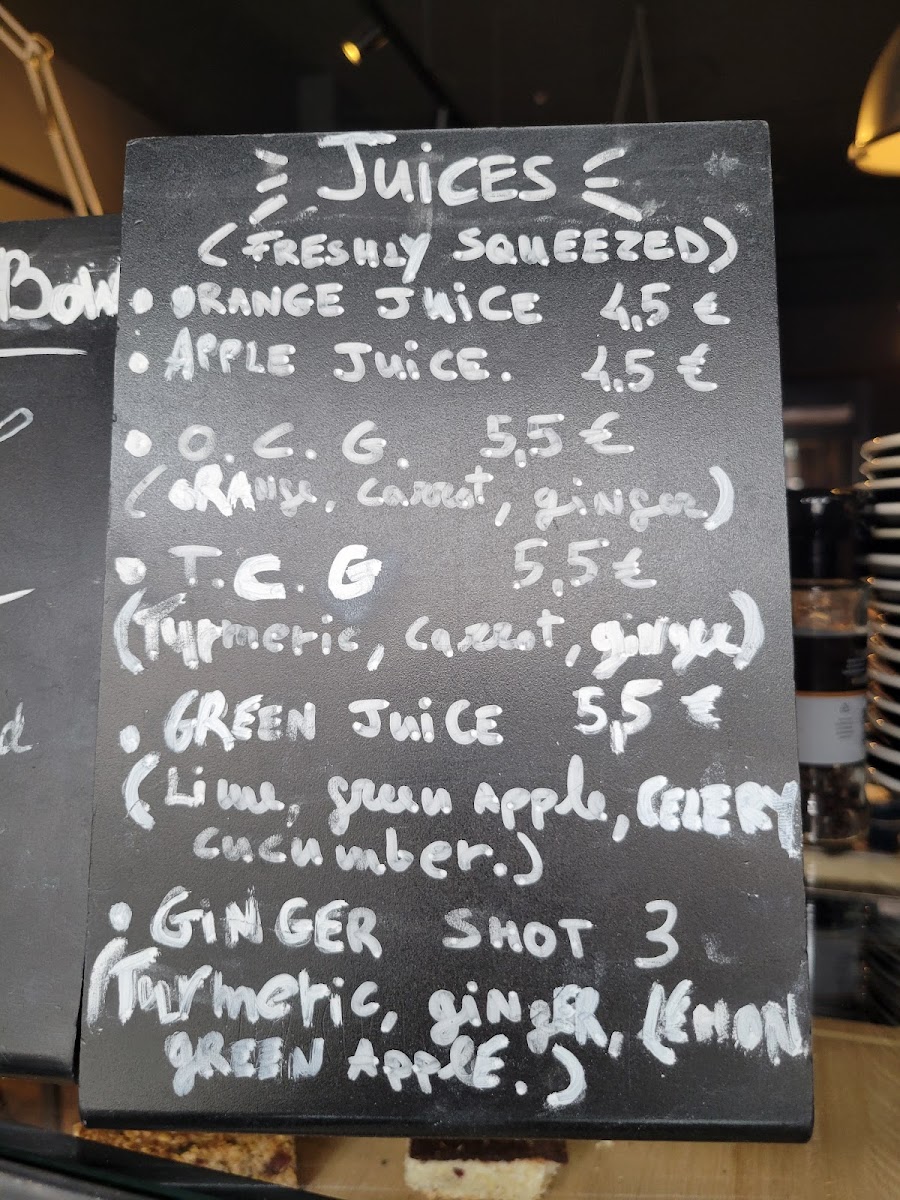 JUiCES
(FRESHLY SQUEEZED)
• ORANGE JUICE 4,5 €
• APPLE JuiCE. 4,5 €
• O. C. G. 5,5 €
(ORAnge, carrot, ginger)
• T. C. G 5,5 €
(Turmeric, carrot, ginger)
• GREEN JuiCE 5,5 €
(Lime, green Apple, CELERY
cucumber.)
• GiNGER SHOT 3
(Turmeric, giNgER, LEMON
gREEN APPlE.)